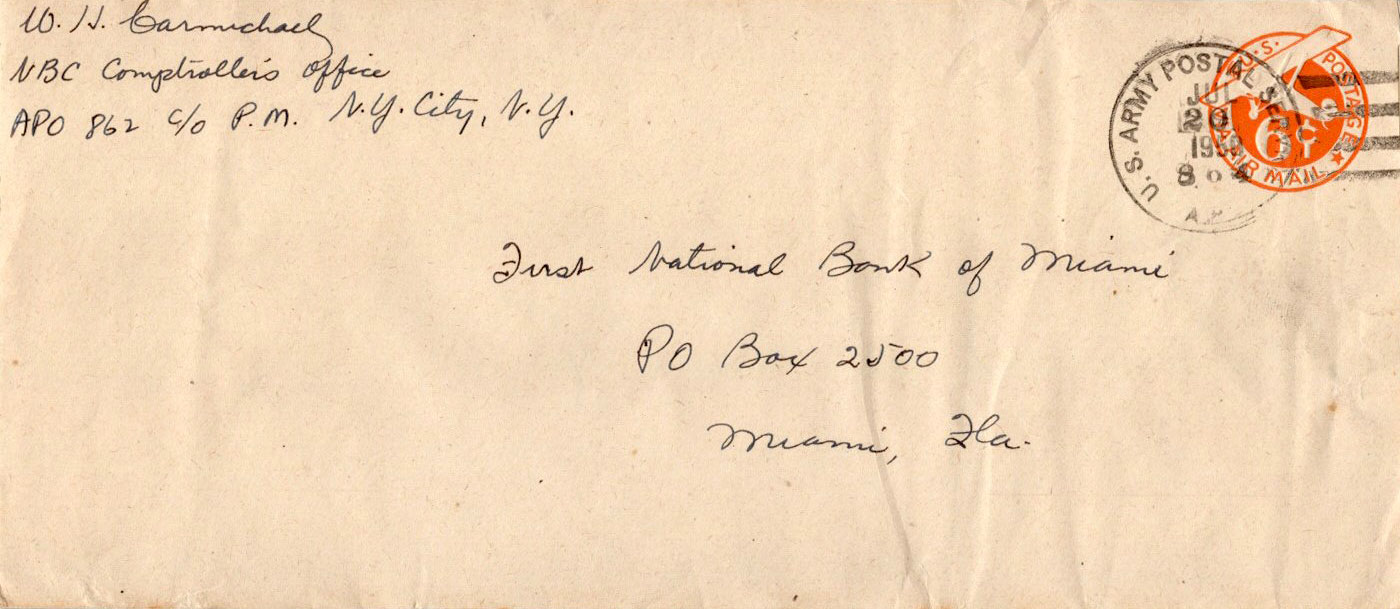 W. H. Carmichael
NBC Comptroller's Office
APO 862 c/o P.M. N.Y. City, N.Y.
U.S. ARMY POSTAL
JUL
20
U.S. POSTAGE
6¢
AIR MAIL
First National Bank of Miami
PO Box 2500
Miami, Fla.